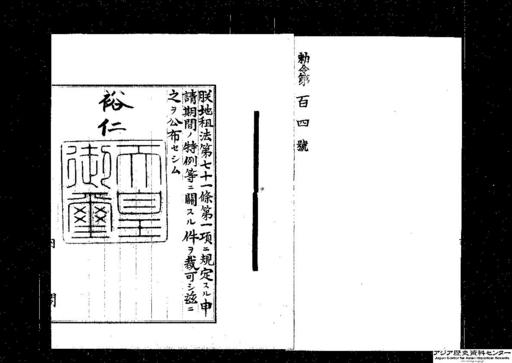 勅令第百四號
朕地租法第七十一條第一項ニ規定スル申
請期間ノ特例等ニ關スル件ヲ裁可シ茲ニ
之ヲ公布セシム
裕仁
天皇
御璽
内閣
アジア歴史資料センター
Japan Center for Asian Historical Records